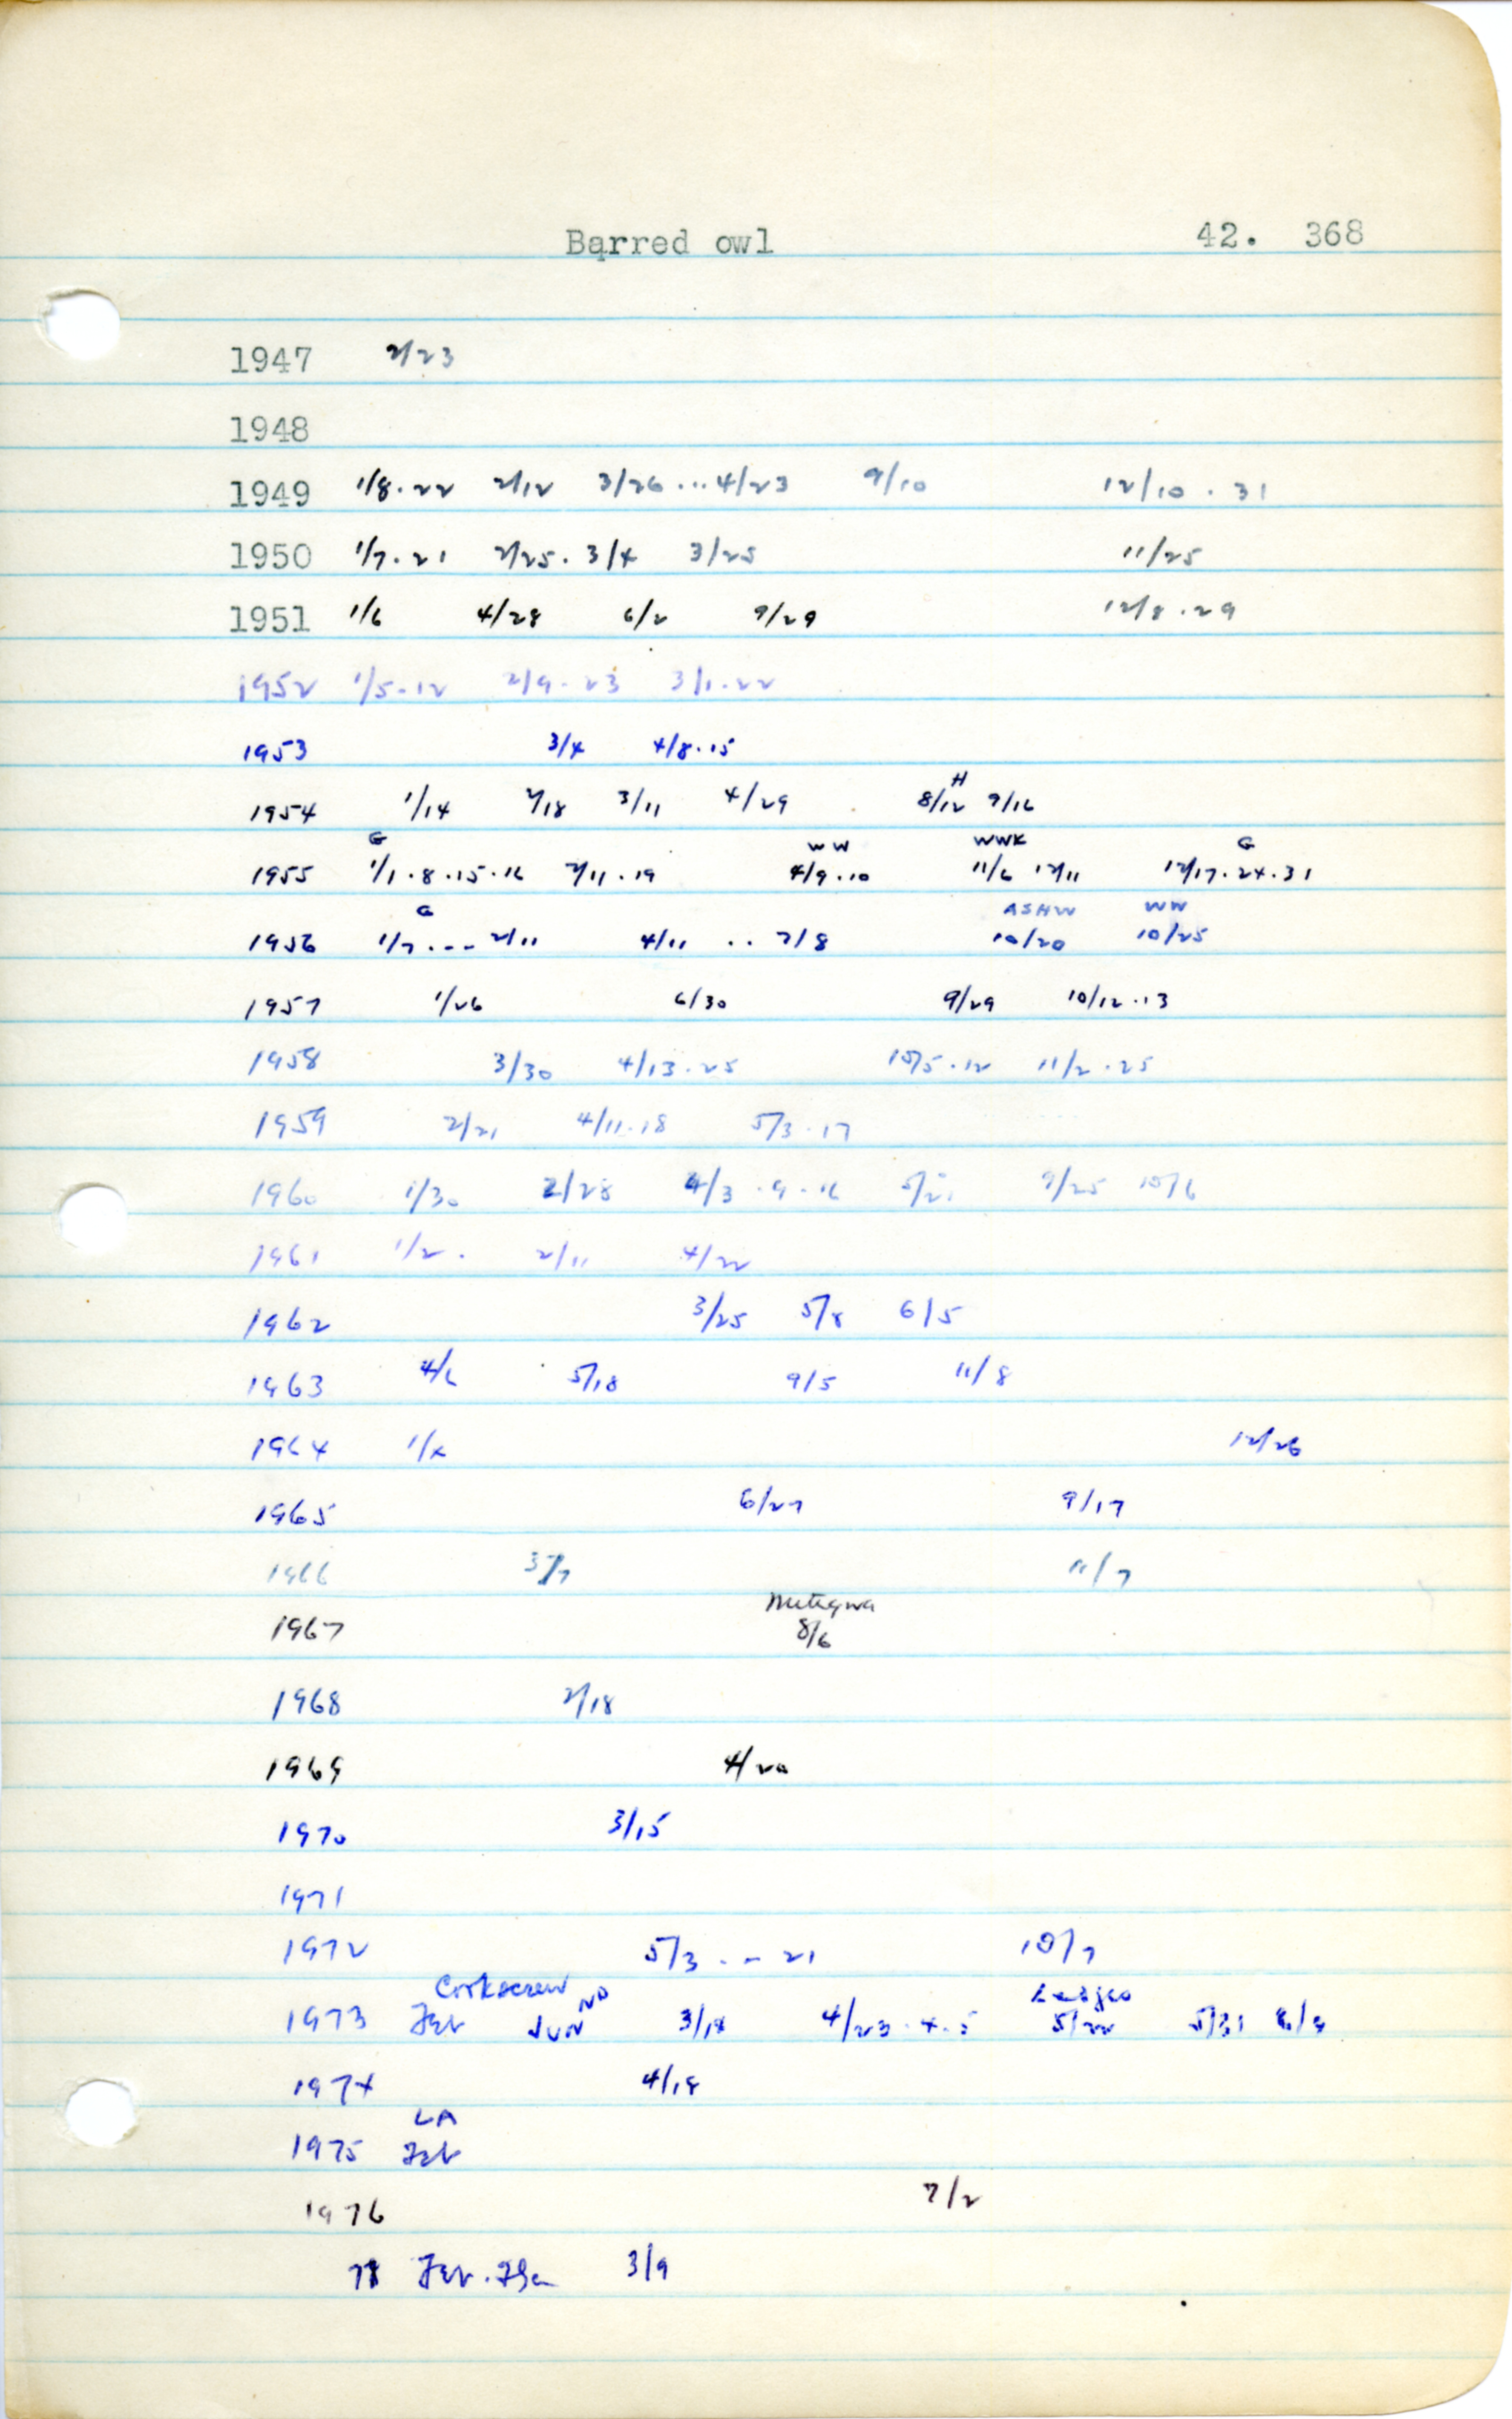 Barred owl 42. 368
1947 2/23
1948
1949 1/8.22 2/12 3/26...4/23 9/10 12/10.31
1950 1/7.21 2/25.3/4 3/25 11/25
1951 1/6 4/28 6/2 9/29 12/8.29
1952 1/5-12 2/9-23 3/1.22
1953 3/4 4/8.15
H
1954 1/14 2/18 3/11 4/29 8/12 9/16
G WW WWK G
1955 1/1.8.15.16 2/11.19 4/9.10 11/6 12/11 12/17.24.31
G ASHW WW
1956 1/7.--2/11 4/11 .. 7/8 10/20 10/25
1957 1/26 6/30 9/29 10/12.13
1958 3/30 4/13.25 10/5.12 11/2.25
1959 2/21 4/11.18 5/3.17
1960 1/30 2/28 4/3.9.16 5/21 9/25 10/6
1961 1/2. 2/11 4/22
1962 3/25 5/8 6/5
1963 4/6 5/18 9/5 11/8
1964 1/4 12/26
1965 6/27 9/17
1966 3/7 11/7
1967 8/6
1968 2/18
1969 4/20
1970 3/15
1971
1972 5/3.--21 10/7
Corkscrew NO
1973 Feb JUN 3/18 4/23.4.5 5/22 5/31 8/8
1974 4/18
LA
1975 Feb
1976 7/2
78 Feb. Fla 3/9